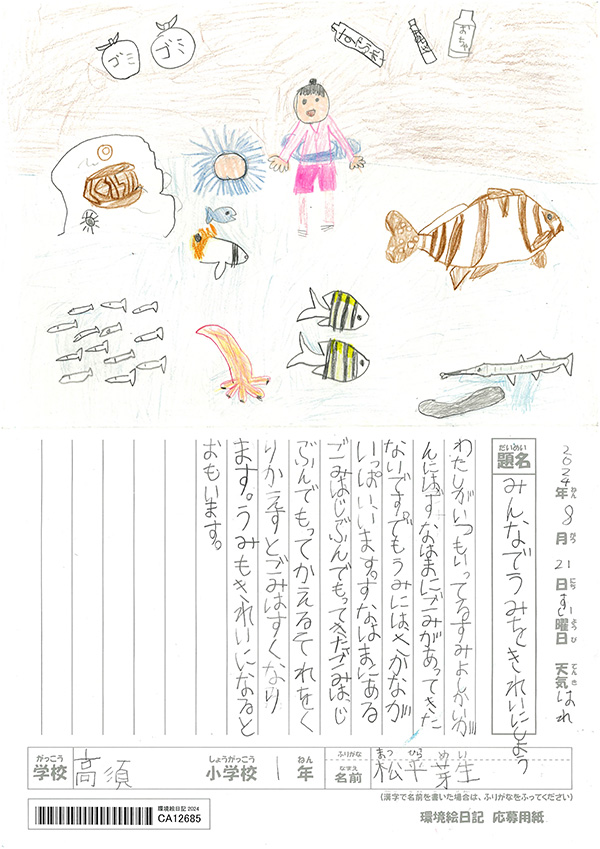 ゴミ
ゴミ
おちゃ
2024年ねん 8月がつ 21日にち すい曜日ようび 天気てんき はれ
題名だいめい みんなでうみをきれいにしよう
わたしがいつもいってるすみよしかいが
んにはすなはまにごみがあってきた
ないです。でもうみにはさかなが
いっぱいいます。すなはまにある
ごみはじぶんでもってきたごみはじ
ぶんでもってかえるそれをく
りかえすとごみはすくなり
ます。うみもきれいになると
おもいます。
がっこう しょうがっこう ねん ふりがな まつ ひら め い
学校 高須 小学校 1 年 なまえ 名前 松 平 芽 生
(漢字で名前を書いた場合は、ふりがなをふってください)
環境絵日記 2024
CA12685
環境絵日記 応募用紙